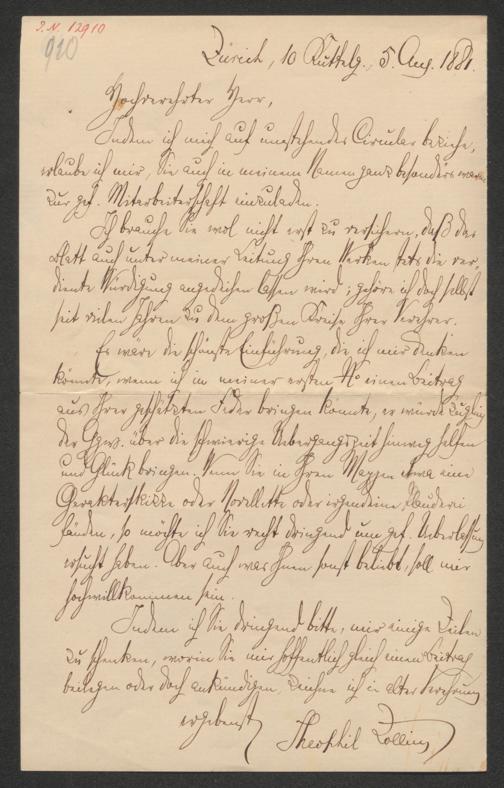 J. N. 12910
910
Zürich, 10 Kuttelg., 5. Aug. 1881.
Hochverehrter Herr,
Indem ich mich auf umstehendes Circular beziehe,
erlaube ich mir, Sie auch in meinem Namen ganz besonders warm
zur gef. Mitarbeiterschaft einzuladen.
Ich brauche Sie wol nicht erst zu versichern, daß das
Blatt auch unter meiner Leitung Ihren Werken stets die ver-
diente Würdigung angedeihen lassen wird; gehöre ich doch selbst
seit vielen Jahren zu dem großen Kreise Ihrer Verehrer.
Es wäre die schönste Einführung, die ich mir denken
könnte, wenn ich in meiner ersten No einen Beitrag
aus Ihrer geschätzten Feder bringen könnte, er würde
der über die schwierige Uebergangszeit hinweg helfen
und Glück bringen. Wenn Sie in Ihren Mappen etwa eine
Charakterskizze oder Novellette oder irgendeine Plauderei
fänden, so möchte ich Sie recht dringend um gef. Ueberlassung
ersucht haben. Aber auch was Ihnen sonst beliebt, soll mir
hochwillkommen sein.
Indem ich Sie dringend bitte, mir einige Zeilen
zu schenken, worin Sie mir hoffentlich gleich einen Beitrag
beilegen oder doch ankündigen, zeichne ich in alter Verehrung
ergebenst
Theophil Zolling